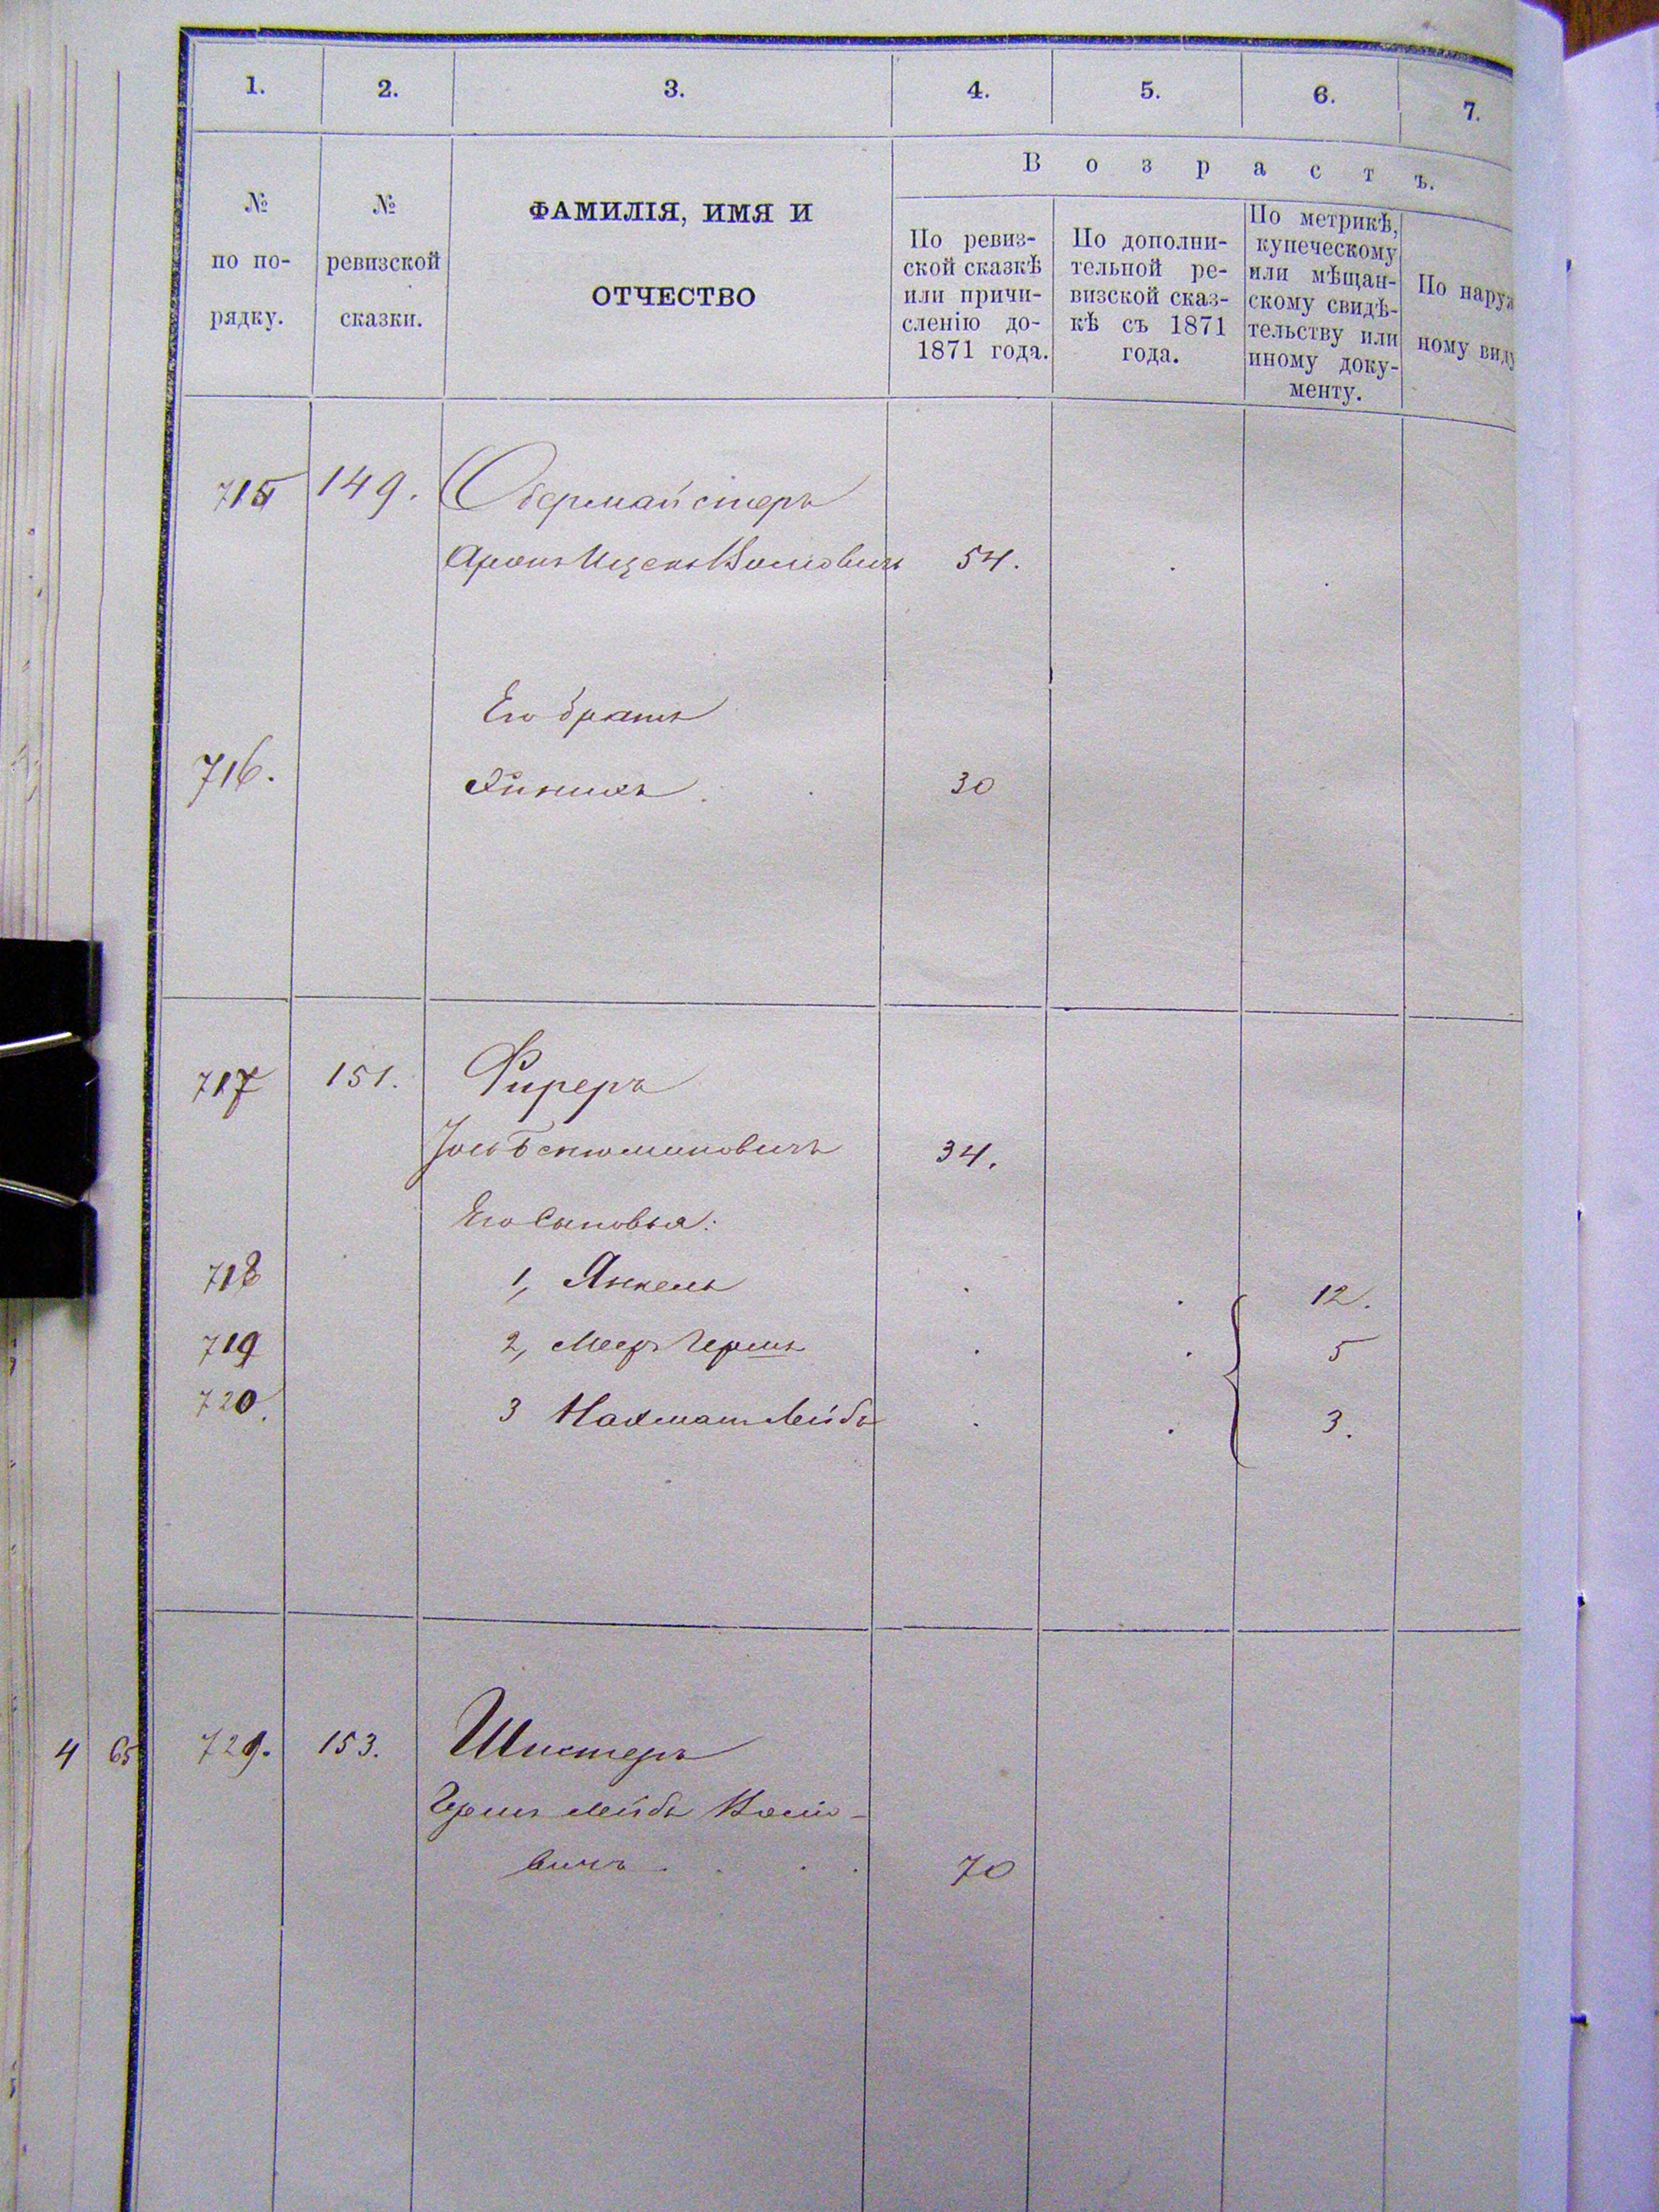 1. 2. 3. 4. 5. 6. 7.
Возрастъ.
№ по по-
рядку.
№
ревизской
сказки.
ФАМИЛІЯ, ИМЯ И
ОТЧЕСТВО
По ревиз-
ской сказкѣ
или причи-
сленію до-
1871 года.
По дополни-
тельной ре-
визской сказ-
кѣ съ 1871
года.
По метрикѣ,
купеческому
или мѣщан-
скому свидѣ-
тельству или
иному доку-
менту.
По наруж
ному виду
715 149. Обермайстеръ
Аронъ Ицекъ 54.
Его братъ
716. 30
717 151. Фиреръ
Бенюминовичъ 34.
Его Сыновья:
718 1, Янкель 12.
719 2, Меер Гершъ 5
720. 3 Нахман Лейбъ 3.
4 65 729. 153. Шистеръ
Гершъ Лейбъ
вичъ 70